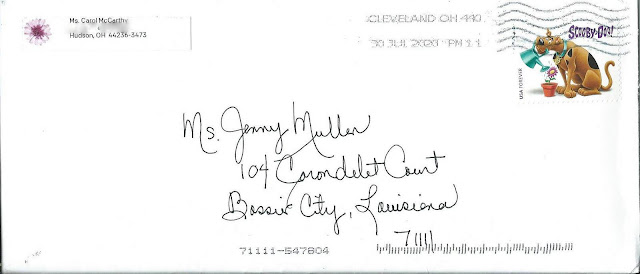 Ms. Carol McCarthy
Hudson, OH 44236-3473
CLEVELAND OH 440
30 JUL 2020 PM 1 L
SCOOBY-DOO!
USA FOREVER
Ms. Jenny Mullen
104 Carondelet Court
Bossier City, Louisiana
71111
71111-547804